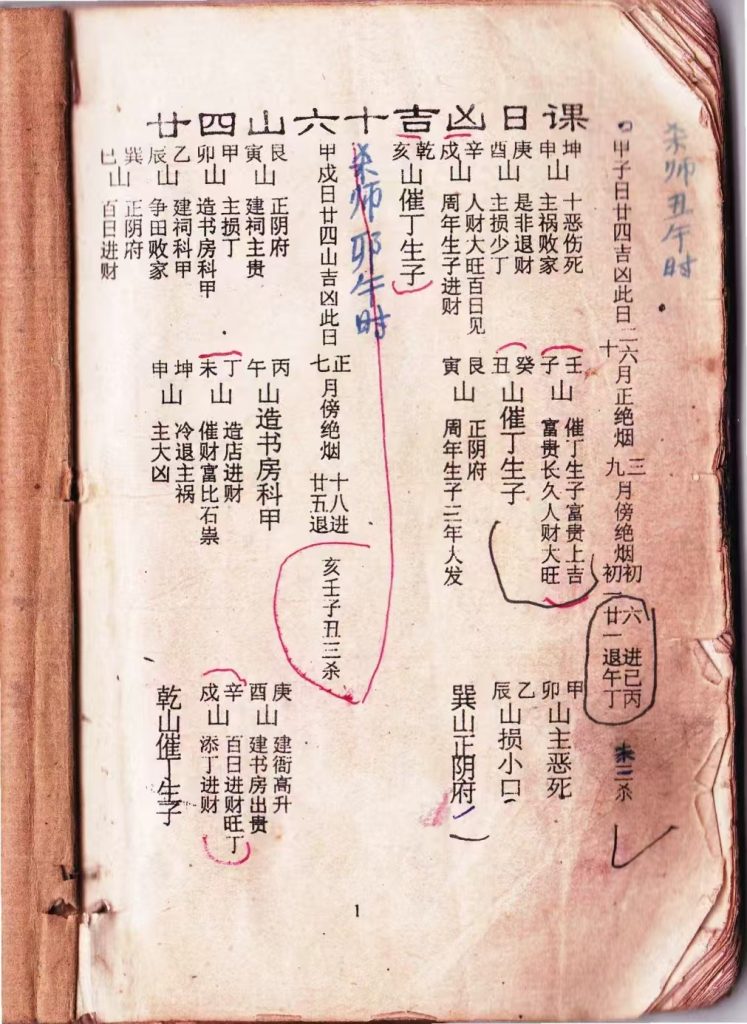 廿四山六十吉凶日课
杀师丑午时
甲子日廿四吉凶此日
二六十月正绝烟
三九月傍绝烟
初六进
初一廿一退
巳丙午丁未三杀
坤申山 十恶伤死 主祸败家
庚酉山 是非退财 主损少丁
辛戌山 人财大旺百日见 周年生子进财
乾亥山催丁生子
壬子山 催丁生子富贵上吉 富贵长久人财大旺
癸丑山催丁生子
艮寅山 正阴府 周年生子三年人发
甲卯山主恶死
乙辰山损小口
巽山正阴府
杀师卯午时
甲戌日廿四山吉凶此日
正七月傍绝烟
十八进
廿五退
亥壬子丑三杀
艮寅山 正阴府 建祠主贵
甲卯山 主损丁 造书房科甲
乙辰山 建祠科甲 争田败家
巽巳山 正阴府 百日进财
丙午山造书房科甲
丁未山 造店进财 催财富比石崇
坤申山 冷退主祸 主大凶
庚酉山 建衙高升 建书房出贵
辛戌山 百日进财旺丁 添丁进财
乾山催丁生子
1